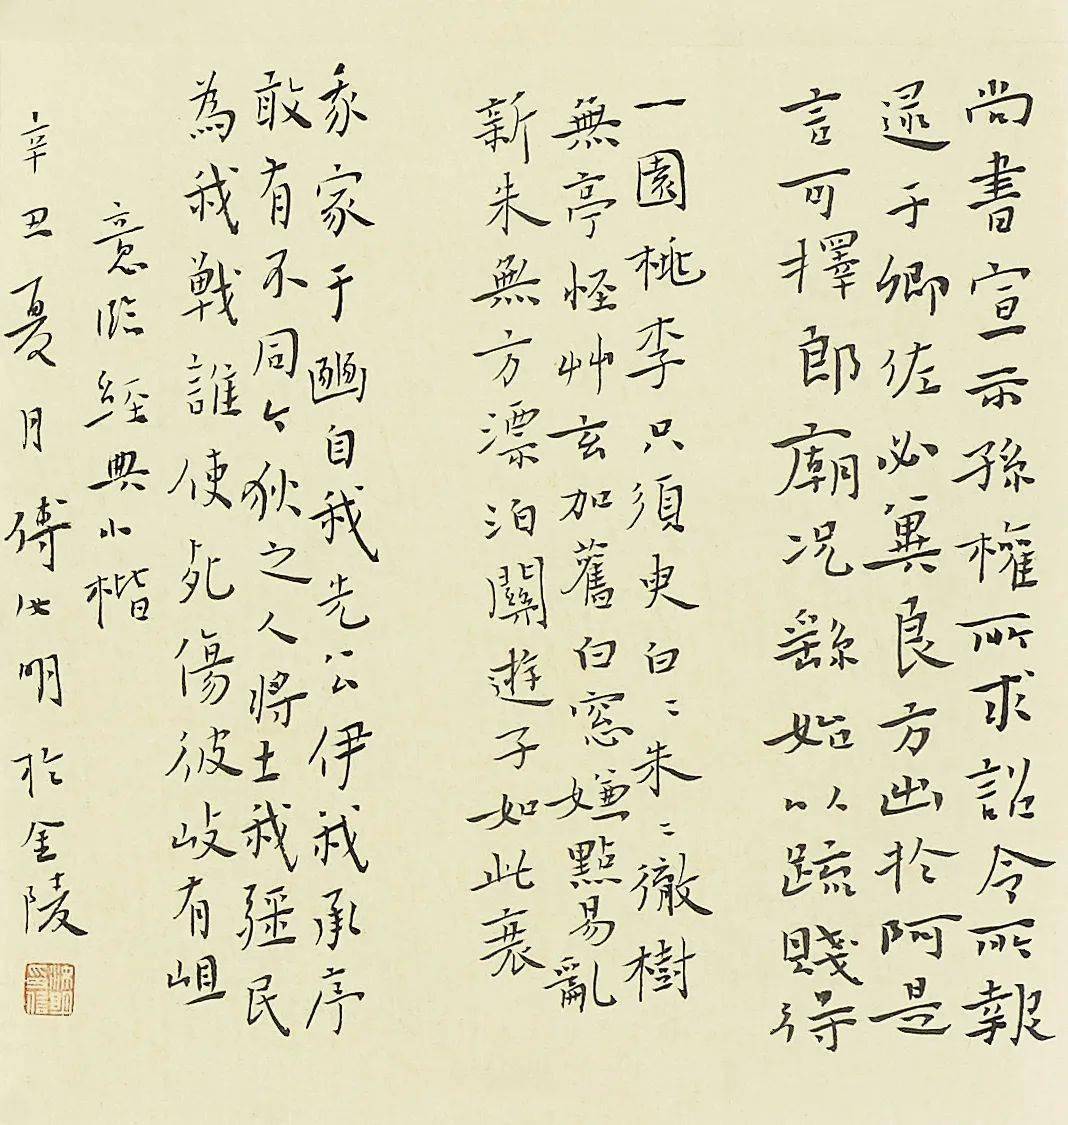 尚書宣示孫權所求詔令所報
逮于卿佐必冀良方出於阿是
言可擇郎廟況繇始以疏賤得
一園桃李只須臾白〻朱〻徹樹
無亭怪艸玄加舊白窓嫌點易亂
新朱無方漂泊關遊子如此衰
我家于豳自我先公伊我承序
敢有不同今狄之人將土我疆民
為我戰誰使死傷彼岐有岨
意臨經典小楷
辛丑夏月傅明於金陵